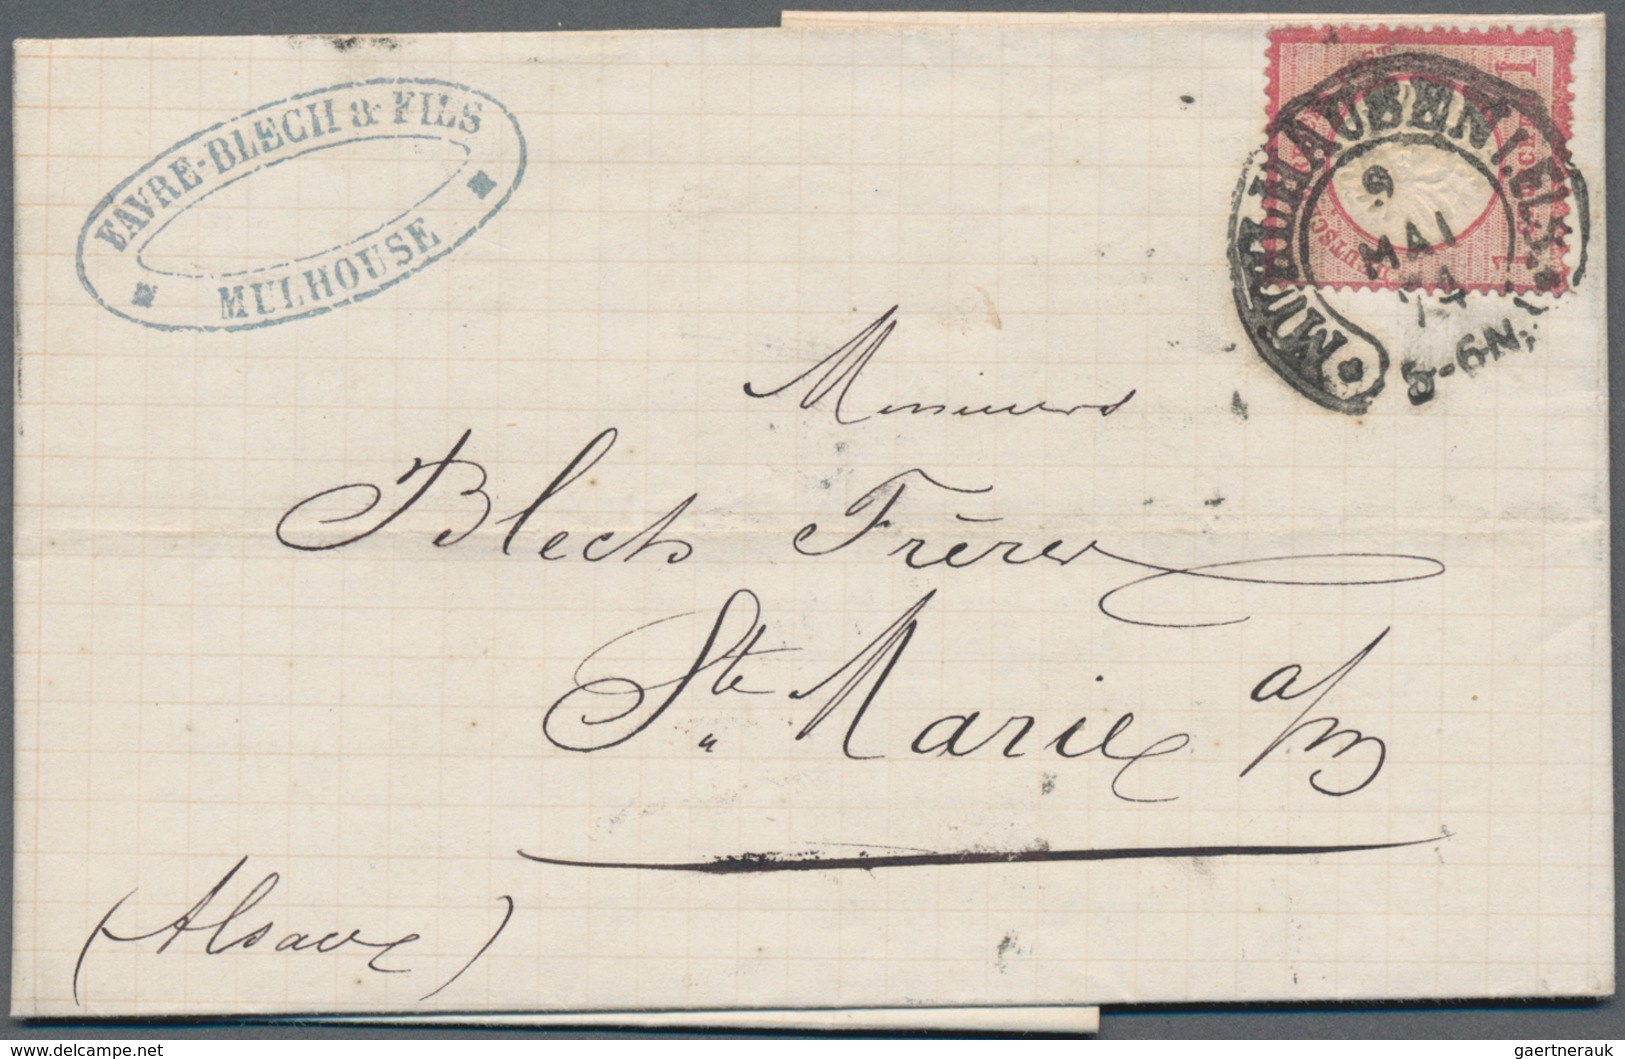 FAVRE-BLECH & FILS
MULHOUSE
MUELHAUSEN I. ELS.
9
MAI
74
5-6N.
1 1
Messieurs
Blech Frères
Ste Marie a/m
(Alsace)
delcampe.net
gaertnerauk